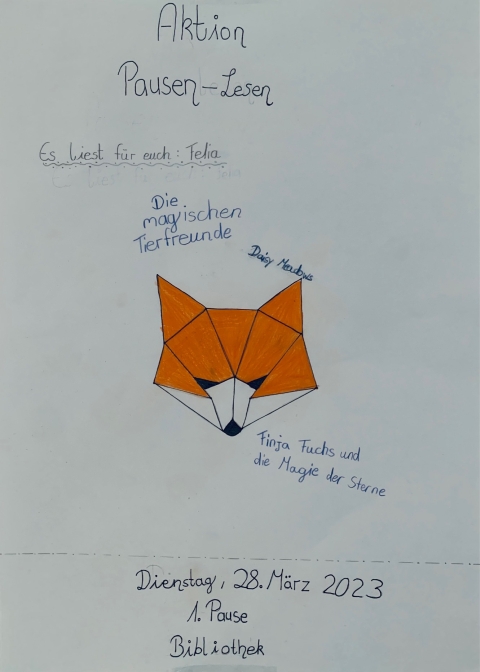 Aktion
Pausen-Lesen
Es liest für euch: Felia
Die
magischen
Tierfreunde
Daisy Meadows
Finja Fuchs und
die Magie der Sterne
Dienstag, 28. März 2023
1. Pause
Bibliothek